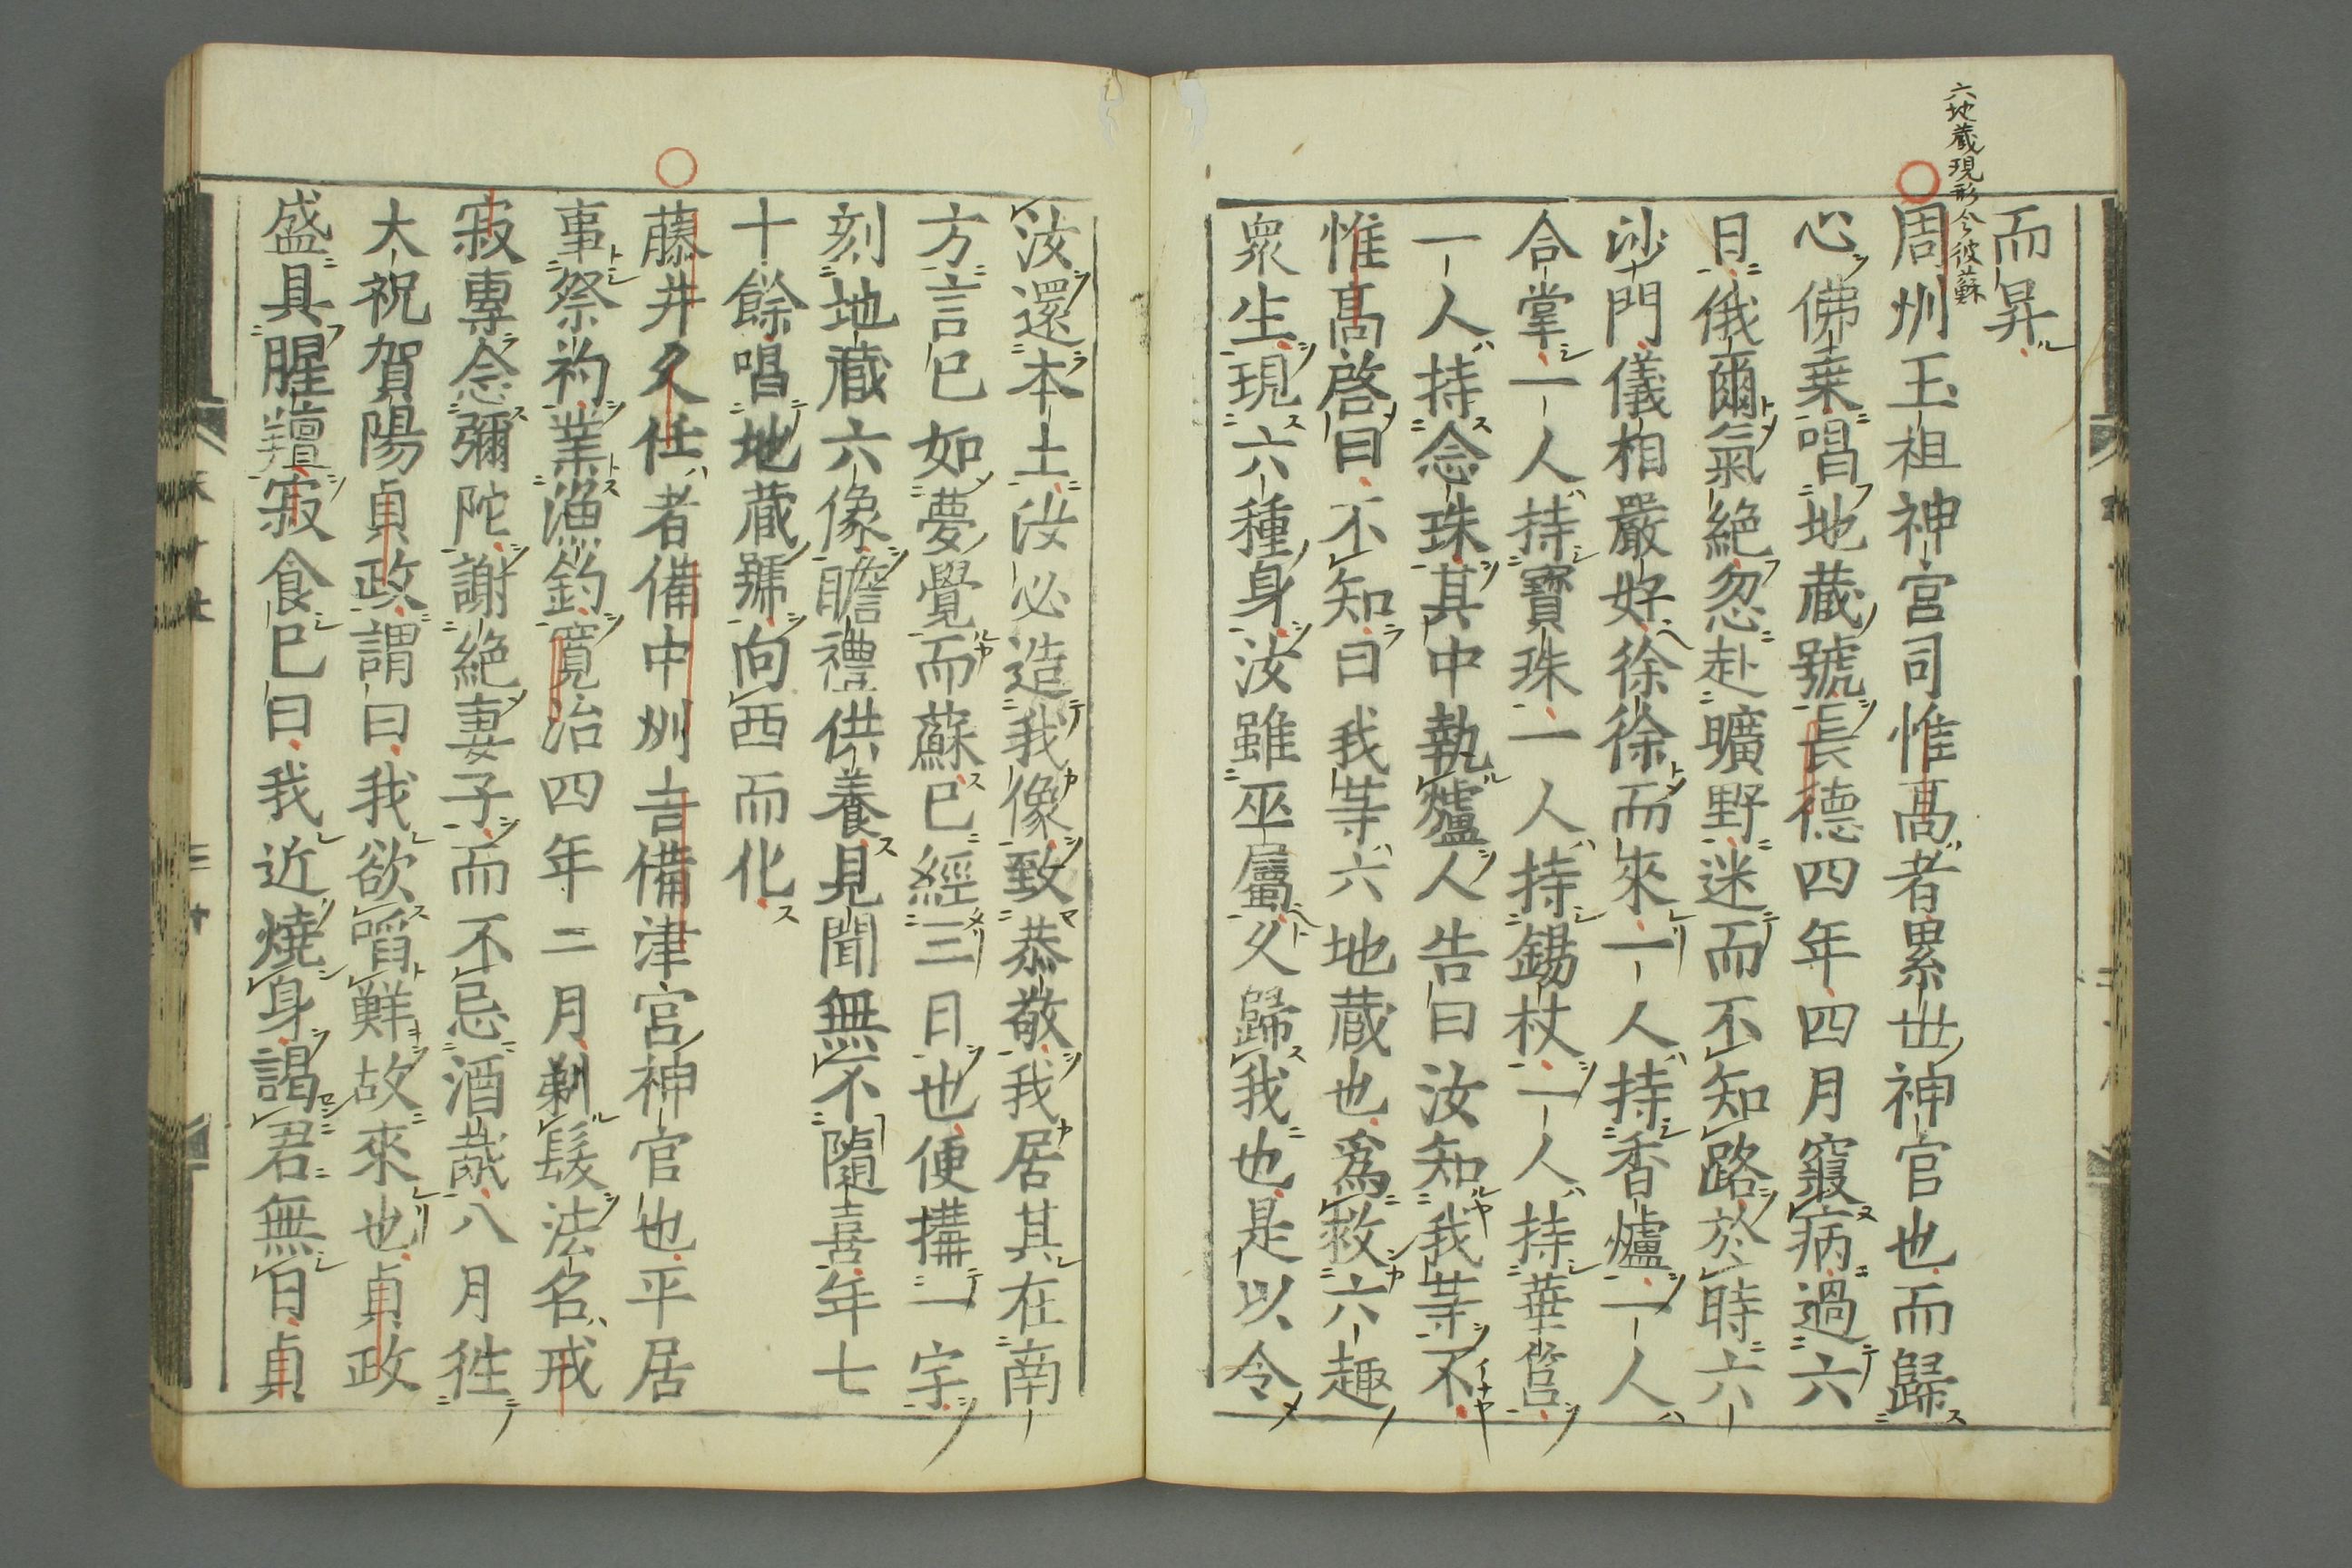 六地蔵現形令彼蘇
而昇
周州玉祖神宮司惟高者累世神官也而歸
心佛乗唱地蔵號長德四年四月寢病過六
日俄爾氣絶忽赴曠野迷而不知路於時六
沙門儀相嚴好徐徐而來一人持香爐一人
合掌一人持寳珠一人持錫杖一人持華筥
一人持念珠其中執爐人告曰汝知我等不
惟高啓曰不知曰我等六地蔵也為救六趣
衆生現六種身汝雖巫屬久歸我也是以令
汝還本土汝必造我像致恭敬我居其在南
方言已如夢覺而蘇已經三日也便搆一宇
刻地蔵六像瞻禮供養見聞無不隨喜年七
十餘唱地蔵號向西而化
藤井久任者備中州吉備津宮神官也平居
事祭礿業漁釣寛治四年二月剃髮法名戒
寂專念彌陀謝絶妻子而不忌酒胾八月徃
大祝賀陽貞政謂曰我欲㗖鮮故來也貞政
盛具腥羶寂食已曰我近燒身謁君無日貞